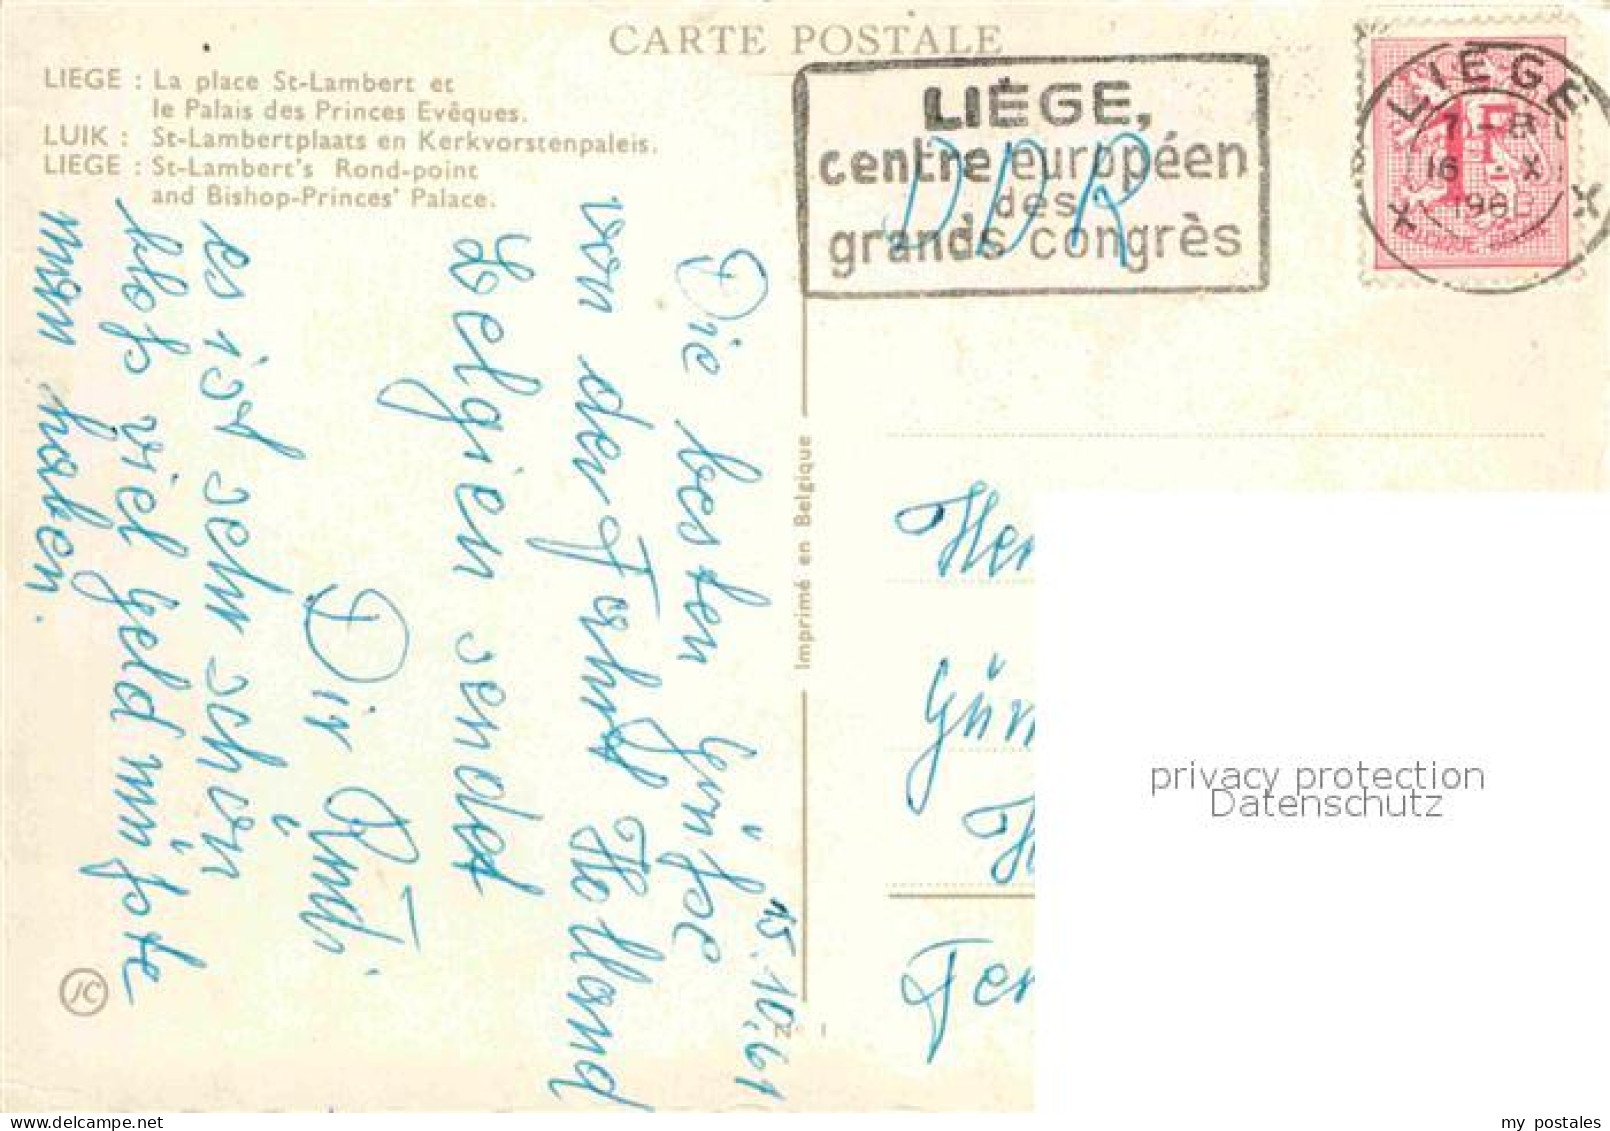 CARTE POSTALE
LIEGE : La place St-Lambert et
le Palais des Princes Evêques.
LUIK : St-Lambertplaats en Kerkvorstenpaleis.
LIEGE : St-Lambert's Rond-point
and Bishop-Princes' Palace.
LIÉGE,
centre européen
des
grands congrès
DDR
LIEGE
7-8
16 X
1961
1F
BELGIQUE-BELGIE
15.10.61
Die besten Grüße
von der Fahrt Holland
Belgien sendet
Dir Rudi
es ist sehr schön
bloß viel Geld müßte
man haben.
Imprimé en Belgique
JC
Her
Gün
Fer
privacy protection
Datenschutz
my postales